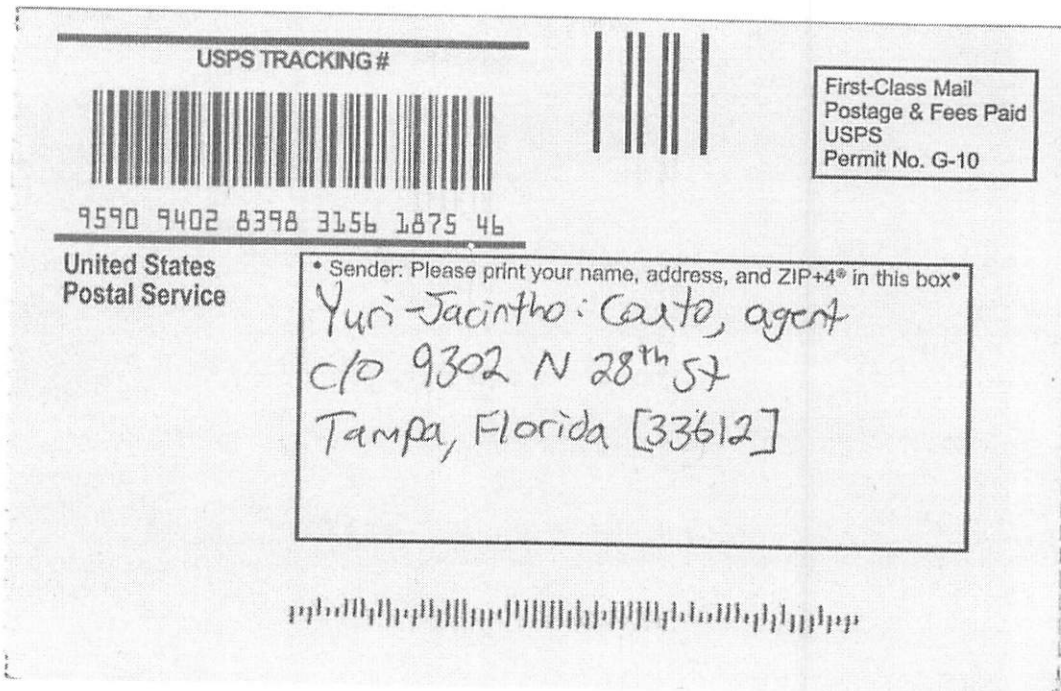 USPS TRACKING #
9590 9402 8398 3156 1875 46
First-Class Mail
Postage & Fees Paid
USPS
Permit No. G-10
United States
Postal Service
• Sender: Please print your name, address, and ZIP+4® in this box•
Yuri-Jacintho: Couto, agent
c/o 9302 N 28th St
Tampa, Florida [33612]